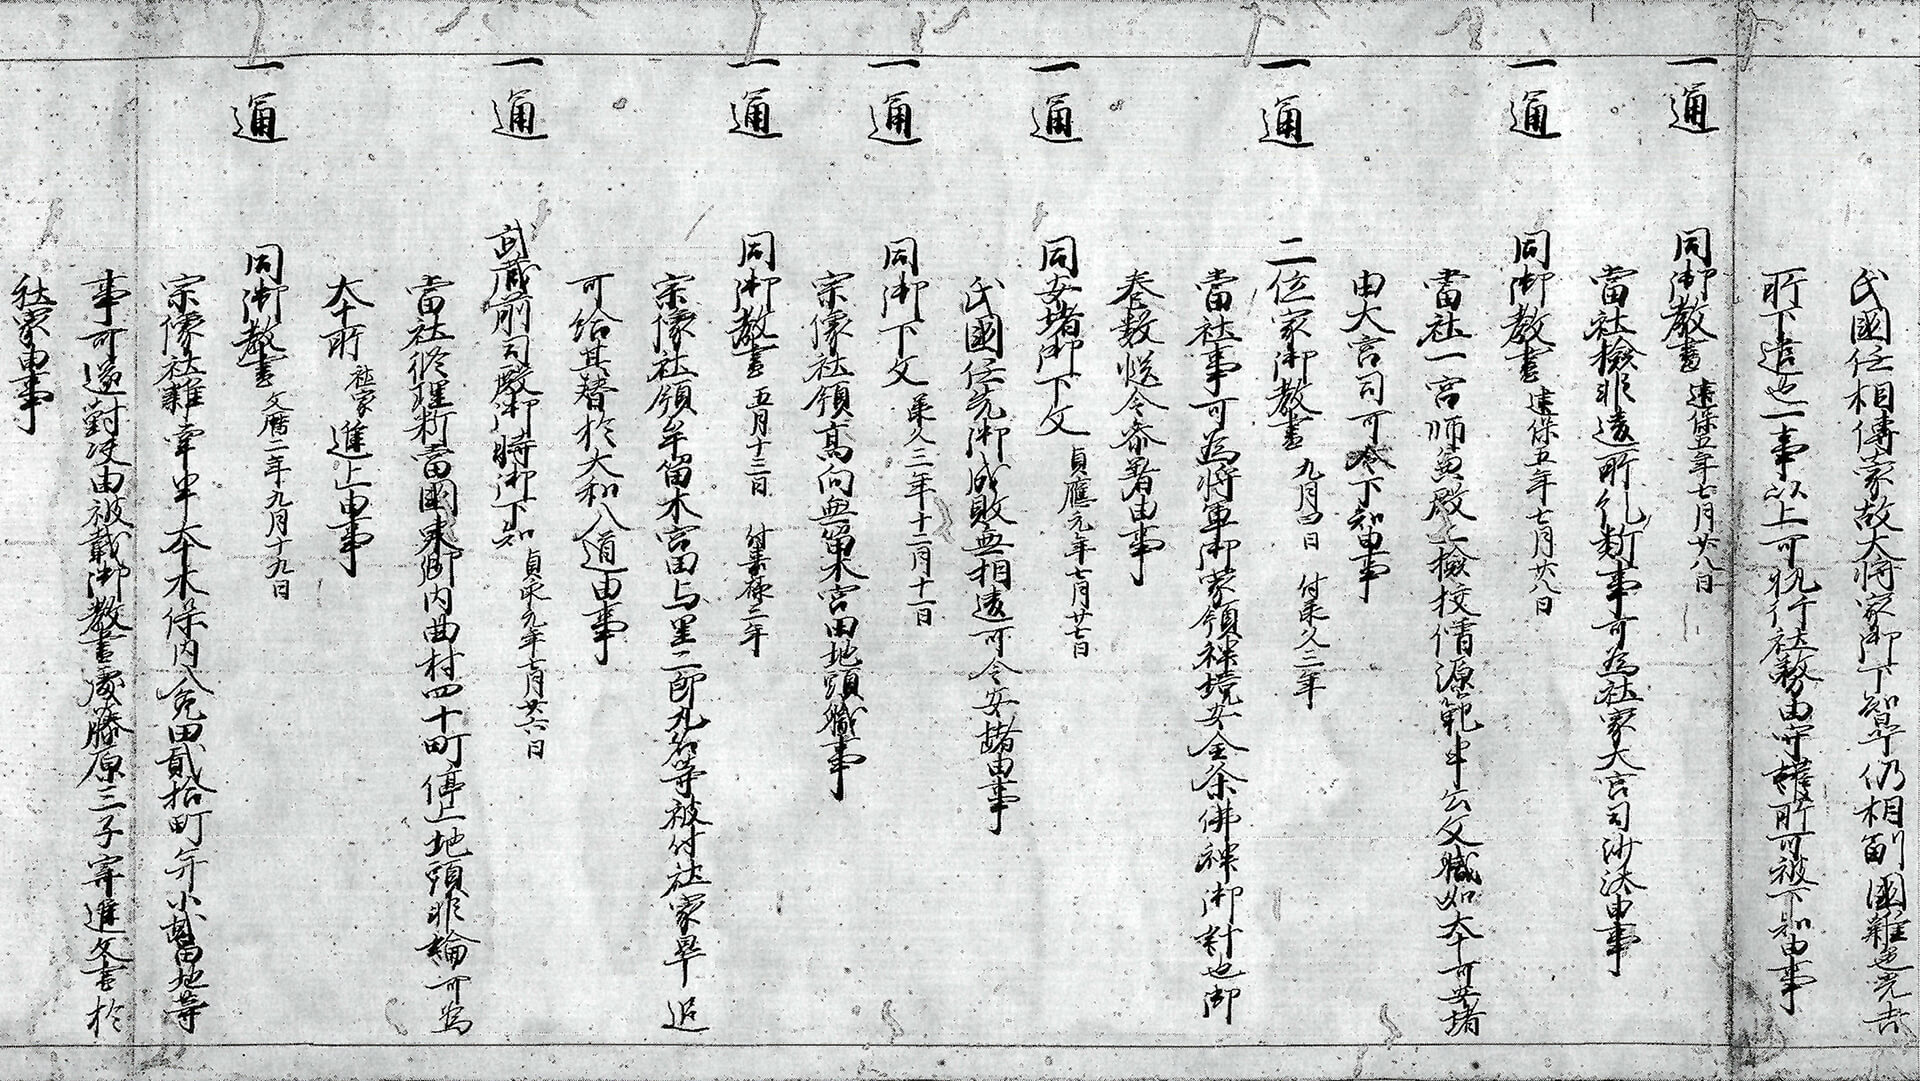 氏國任相傳家故大将家御下知早仍相副國雜色先去
所下遣也一事以上可執行社務由守護所可被下知由事
一通 同御教書 建保五年七月廿八日
當社檢非違所糺断事可為社家大宮司沙汰由事
一通 同御教書 建保五年七月廿八日
當社一宮師兼殿上檢校僧源範申公文職如本可安堵
由大宮司可令下知由事
一通 二位家御教書 九月四日 付承久三年
當社事可為将軍御家領神境安全条佛神御計也御
巻数慥令參着由事
一通 同安堵御下文 貞應元年七月廿七日
氏國任先御成敗無相違可令安堵由事
一通 同御下文 承久三年十二月十一日
宗像社領髙向無留木宮田地頭職事
一通 同御教書 五月十三日 付嘉禄二年
宗像社領牟留木宮田与里二郎丸名等被付社家畢 追
可給其替於大和入道由事
一通 武蔵前司殿御時御下知 貞永元年七月廿六日
當社修理新當國東郷内曲村四十町停止地頭非論可為
本所 社家 進止由事
一通 同御教書 文暦二年九月十九日
宗像社雜掌申本木保内八免田貳拾町并小 當地等
事可遂對决由被載御教書處藤原三子寄進文書於
社家由事